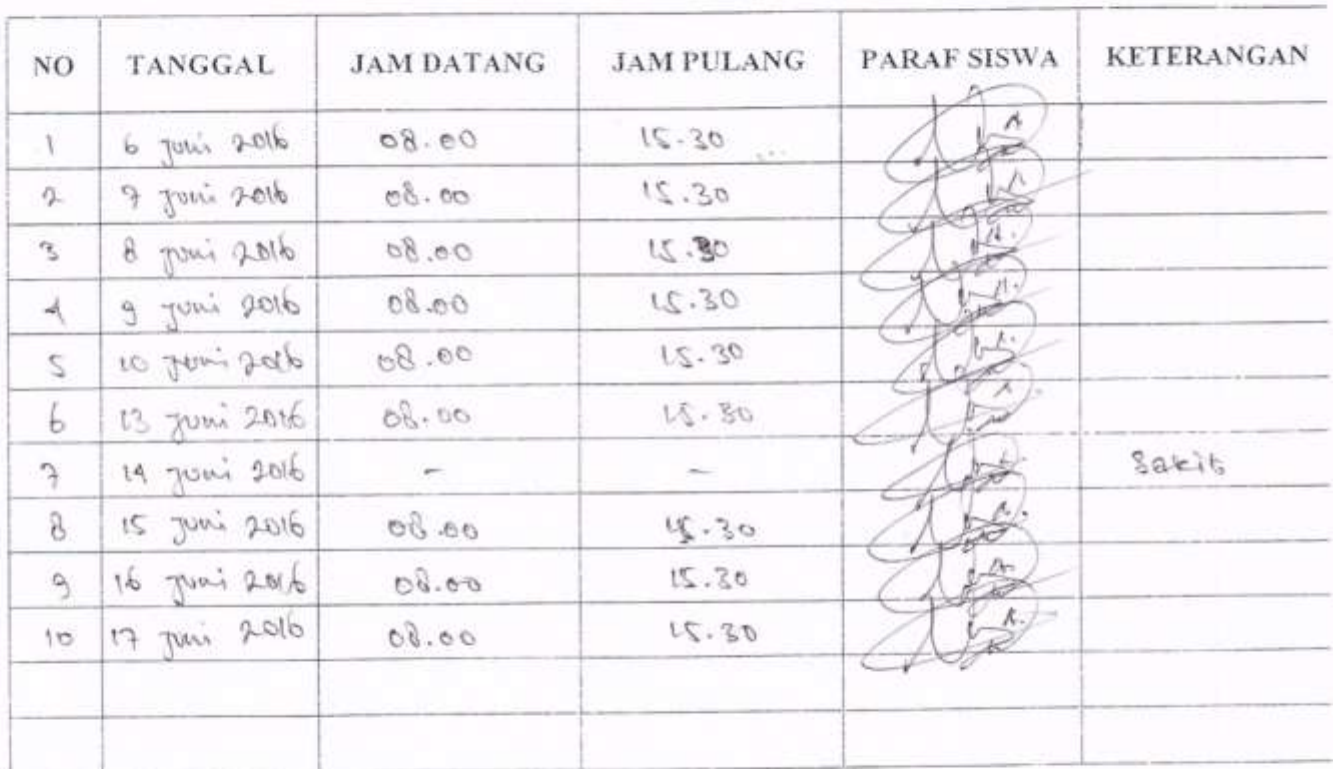 NO TANGGAL JAM DATANG JAM PULANG PARAF SISWA KETERANGAN
1 6 juni 2016 08.00 15.30
2 7 juni 2016 08.00 15.30
3 8 juni 2016 08.00 15.30
4 9 juni 2016 08.00 15.30
5 10 juni 2016 08.00 15.30
6 13 juni 2016 08.00 15.30
7 14 juni 2016 - - Sakit
8 15 juni 2016 08.00 15.30
9 16 juni 2016 08.00 15.30
10 17 juni 2016 08.00 15.30